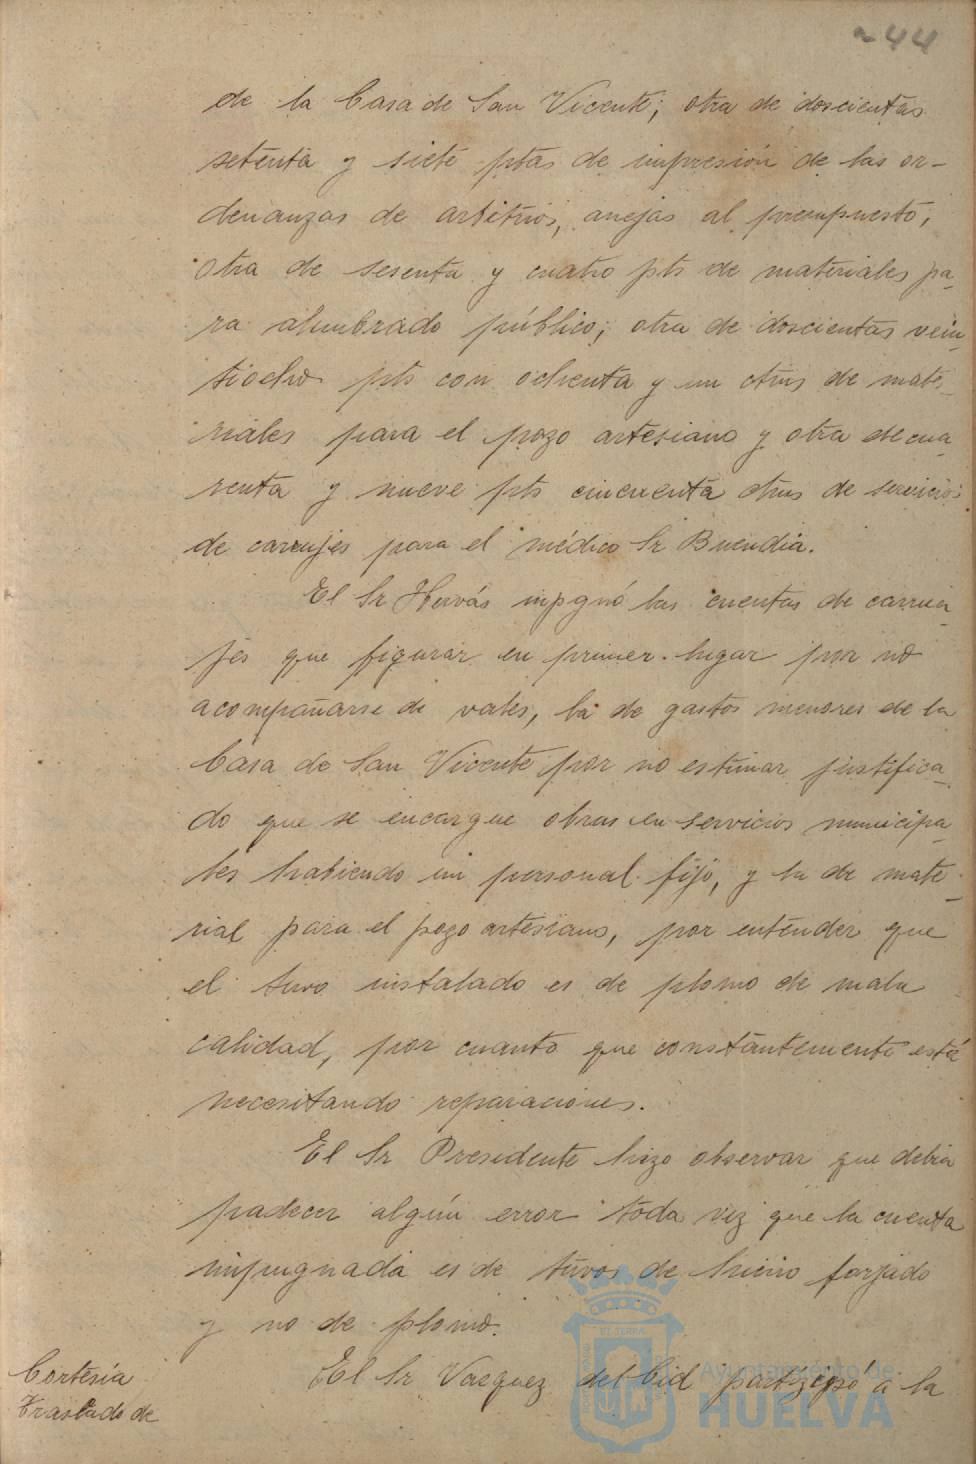 244
de la Casa de San Vicente; otra de doscientas
setenta y siete ptas de impresión de las or-
denanzas de arbitrios, anejas al presupuesto;
otra de sesenta y cuatro pts de materiales pa-
ra alumbrado público; otra de doscientas vein-
tiocho pts con ochenta y un ctms de mate-
riales para el pozo artesiano y otra de cua-
renta y nueve pts cincuenta ctms de servicios
de carruajes para el médico Sr Buendia.
El Sr Hervás inpgnó las cuentas de carrua-
jes que figurar en primer lugar por no
acompañarse de vales, la de gastos menores de la
Casa de San Vicente por no estimar justifica-
do que se encargue obras en servicios municipa-
les habiendo un personal fijo, y la de mate-
rial para el pozo artesiano, por entender que
el tuvo instalado es de plomo de mala
calidad, por cuanto que constantemente está
necesitando reparaciones.
El Sr Presidente hizo observar que debia
padecer algún error toda vez que la cuenta
impugnada es de tuvos de hierro forjado
y no de plomo.
Cortesía
El Sr Vazquez del Cid participó á la
Traslado de
Ayuntamiento de
HUELVA